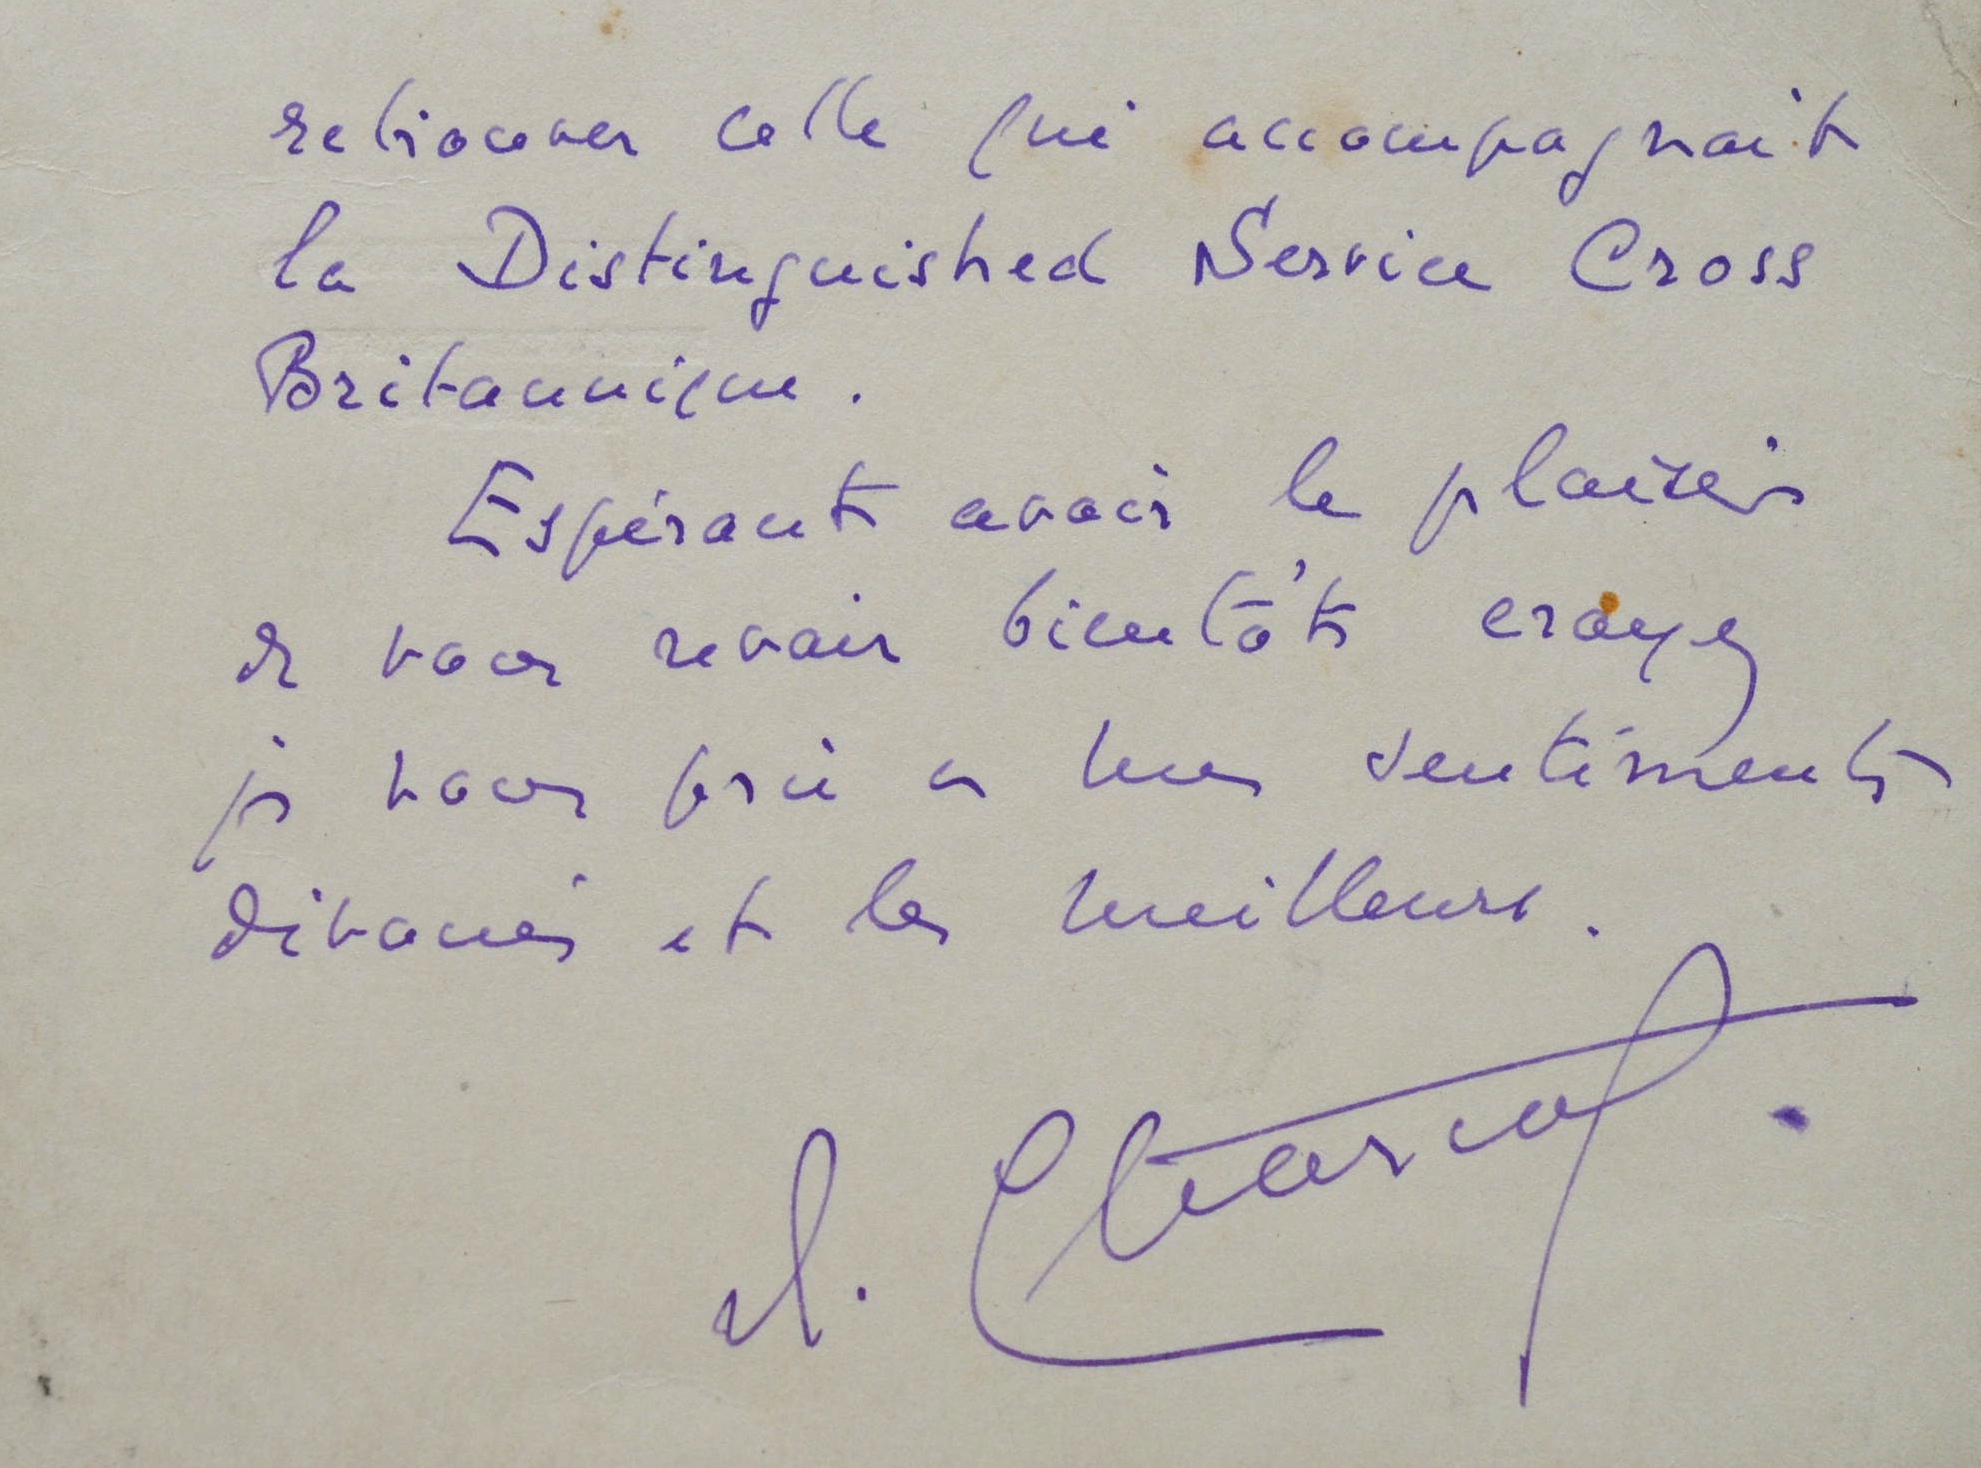 retrouver celle qui accompagnait
la Distinguished Service Cross
Britannique.
Espérant avoir le plaisir
de vous revoir bientôt croyez
je vous prie à mes sentiments
dévoués et les meilleurs.
J. Charcot.